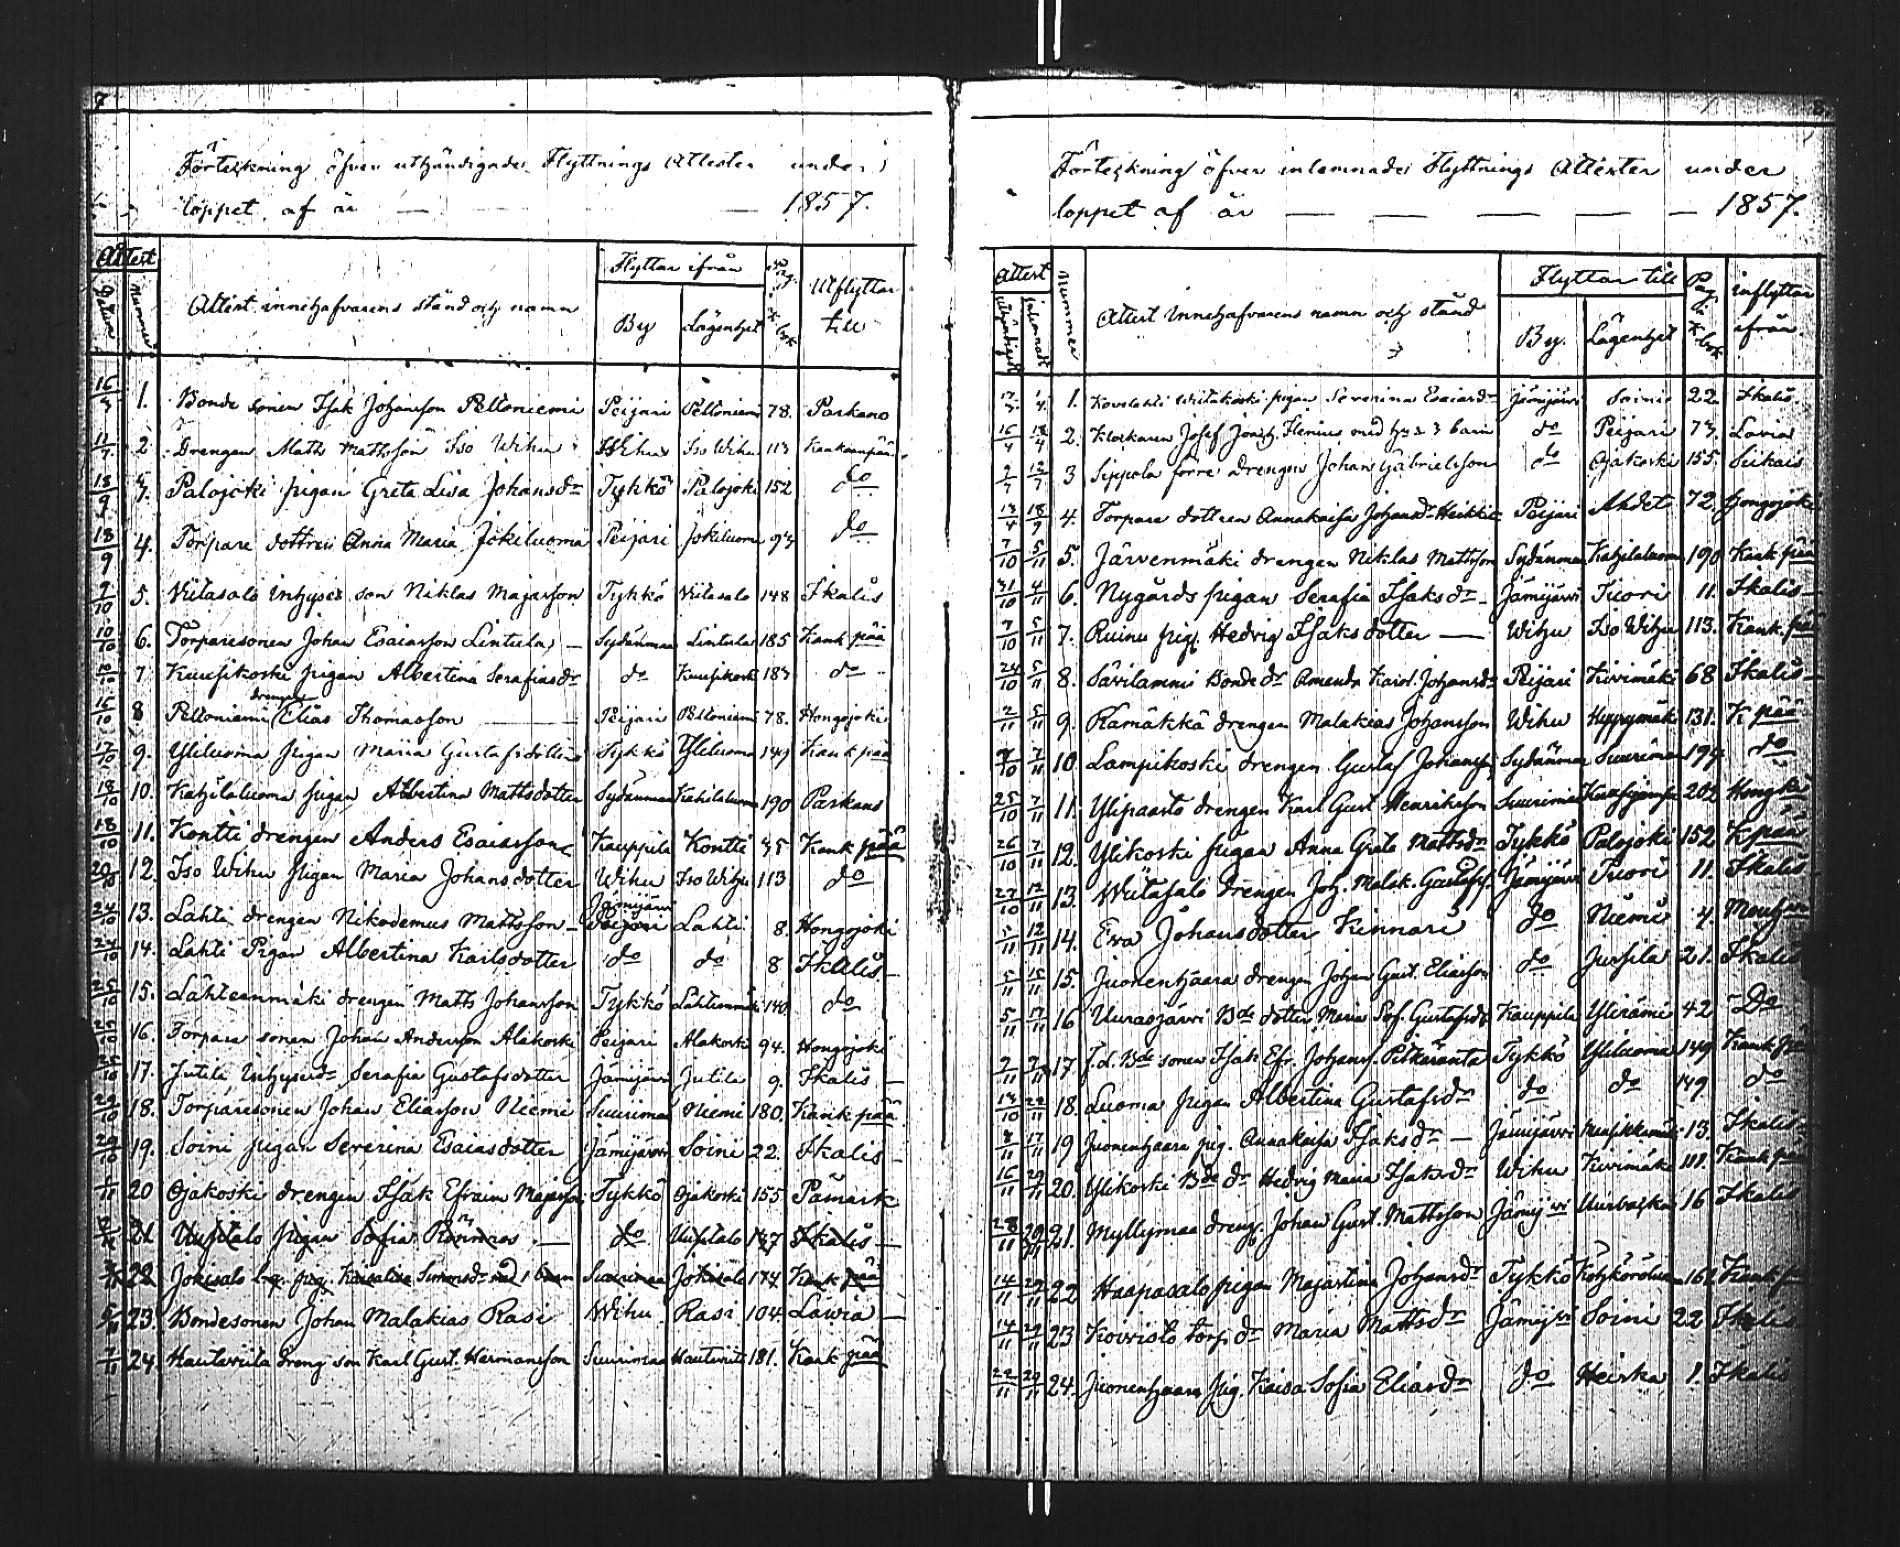 7
Förteckning öfver uthändigade Flyttnings Attester under
loppet af år — — 1857.
Attest
Datum Nummer Attest innehafvarens stånd och namn Flyttar ifrån By Lägenhet Pag. i K. bok Utflyttar till
16/3 1. Bonde sonen Isak Johansson Peltoniemi Peijari Peltoniemi 78. Parkano
11/7 2. Drengen Matts Mattsson Iso Wihu Wihu Iso Wihu 113 Kankaanpää
18/9 3. Palojoki pigan Greta Lisa Johansdr Tykkö Palojoki 152 do
18/9 4. Torpare dottren Anna Maria Jokiluoma Peijari Jokiluoma 93 do
9/10 5. Viitasalo Inhyses son Niklas Majasson Tykkö Viitasalo 148 Ikalis
10/10 6. Torparesonen Johan Esaiasson Lintula — Sydänmaa Lintula 185 Kank pää
10/10 7 Kuusikoski pigan Albertina Serafiasdr do Kuusikoski 183 do
16/10 8 Peltoniemi drengen Elias Thomasson Peijari Peltoniemi 78. Hongojoki
17/10 9. Yliluoma pigan Maria Gustafsdotter Tykkö Yliluoma 149 Kank pää
18/10 10. Katsilaluoma pigan Albertina Mattsdotter Sydänmaa Katsilaluoma 190 Parkano
18/10 11. Kontti drengen Anders Esaiasson Kauppila Kontti 35 Kank pää
20/10 12. Iso Wihu pigan Maria Johansdotter Wihu Iso Wihu 113 do
24/10 13. Lahti drengen Nikodemus Mattsson — Jämijärvi Peijari Lahti 8. Hongojoki
24/10 14. Lahti Pigan Albertina Karlsdotter do do 8 Ikalis —
25/10 15. Lähteenmäki drengen Matts Johansson Tykkö Lähteenmäki 140. do
16. Torpare sonen Johan Andersson Alakoski Peijari Alakoski 94. Hongojoki
17. Jutila Inhysesdr Serafia Gustafsdotter Jämijärvi Jutila 9. Ikalis —
29/10 18. Torparesonen Johan Eliasson Niemi Suurimaa Niemi 180. Kank pää
29/10 19. Soini pigan Severina Esaiasdotter Jämijärvi Soini 22. Ikalis —
1/11 20 Ojakoski drengen Isak Efraim Majasson Tykkö Ojakoski 155 Påmark
21 Uusitalo pigan Sofia — do Uusitalo 137 Ikalis —
22 Jokisalo pig. Simonsdr med 1 barn Suurimaa Jokisalo 177 Kank pää
23. Bondesonen Johan Malakias Rasi Wihu Rasi 104 Lavia —
7/11 24 Hautaviita dreng son Karl Gust. Hermansson Suurimaa Hautaviita 181. Kank pää
8
Förteckning öfver inlemnade Flyttnings Attester under
loppet af år — — — — — 1857.
Attest
uthändigad inlemnadt Nummer Attest Innehafvarens namn och stånd Flyttar till By. Lägenhet Pag. i K. bok inflyttar ifrån
1. Kovelahti Viitakoski pigan Severina Esaiasdr Jämijärvi Soini 22 Ikalis
16/4 18/4 2. Klockaren Josef Joh. Flenius med hu & 3 barn do Peijari 73. Lavia
2/7 12/7 3 Sippola förre drengen Johan Gabrielsson do Ojakoski 155. Siikais
13/4 18/9 4. Torpare dottren Annakaisa Johansdr Heikkie Peijari Ahdet 72. Hongojoki
7/10 5/11 5. Järvenmäki drengen Niklas Mattsson Sydänmaa Katsilaluoma 190 Kank pää
31/10 4/11 6. Nygårds pigan Serafia Isaksdr — Jämijärvi Tuori 11. Ikalis —
7/10 5/11 7. Ruinu pig. Hedvig Isaksdotter — Wihu Iso Wihu 113. Kank. pää
24/10 5/11 8. Sävilammi Bonde dr Amanda Karol. Johansdr Peijari Kivimäki 68 Ikalis —
2/11 5/11 9. Rämäkkä drengen Malakias Johansson Wihu Hyppymäki 131. K pää
7/11 10 Lampikoski drengen Gustaf Johanss. Sydänmaa Suurimaa 194 do
25/10 7/11 11. Ylipaasto drengen Karl Gust Henriksson Suurimaa 202 Hongki
26/10 7/11 12. Ylikoski pigan Anna Greta Mattsdr Tykkö Palojoki 152 K pää
27/10 12/11 13. Wiitasalo drengen Joh. Malak. Gustafss. Jämijärvi Tuori 11. Ikalis
5/11 12/11 14. Eva Johansdotter Kinnari do Niemi 4.
5/11 15/11 15. Juonenhaara drengen Johan Gust. Eliasson do Jussila 21. Ikalis
5/11 17/11 16 Uurasjärvi Bde dotter Maria Sof. Gustafsdr Kauppila Ylirämi 42 Do
17. f.d. Bde sonen Isak Efr. Johanss. Pitkäranta Tykkö Yliluoma 149 Kank pää
18. Luoma pigan Albertina Gustafsdr do do 149 do
19 Juonenhaara pig. Annakaisa Isaksdr — Jämijärvi 13. Ikalis
16/11 29/11 20. Ylikoski Bde dr Hedvig Maria Isaksdr Wihu Kivimäki 111. Kank pää
28/11 29/11 21. Myllymaa dreng. Johan Gust. Mattsson Jämijvi 16 Ikalis
14/11 29/11 22 Haapasalo pigan Majastina Johansdr Tykkö 162 Kank p
14/11 29/11 23 Koivisto torp. dr Maria Mattsdr Jämijvi Soini 22 Ikali
22/11 29/11 24. Juonenhaara pig. Kaisa Sofia Eliasdr do Heiska 1. Ikalis